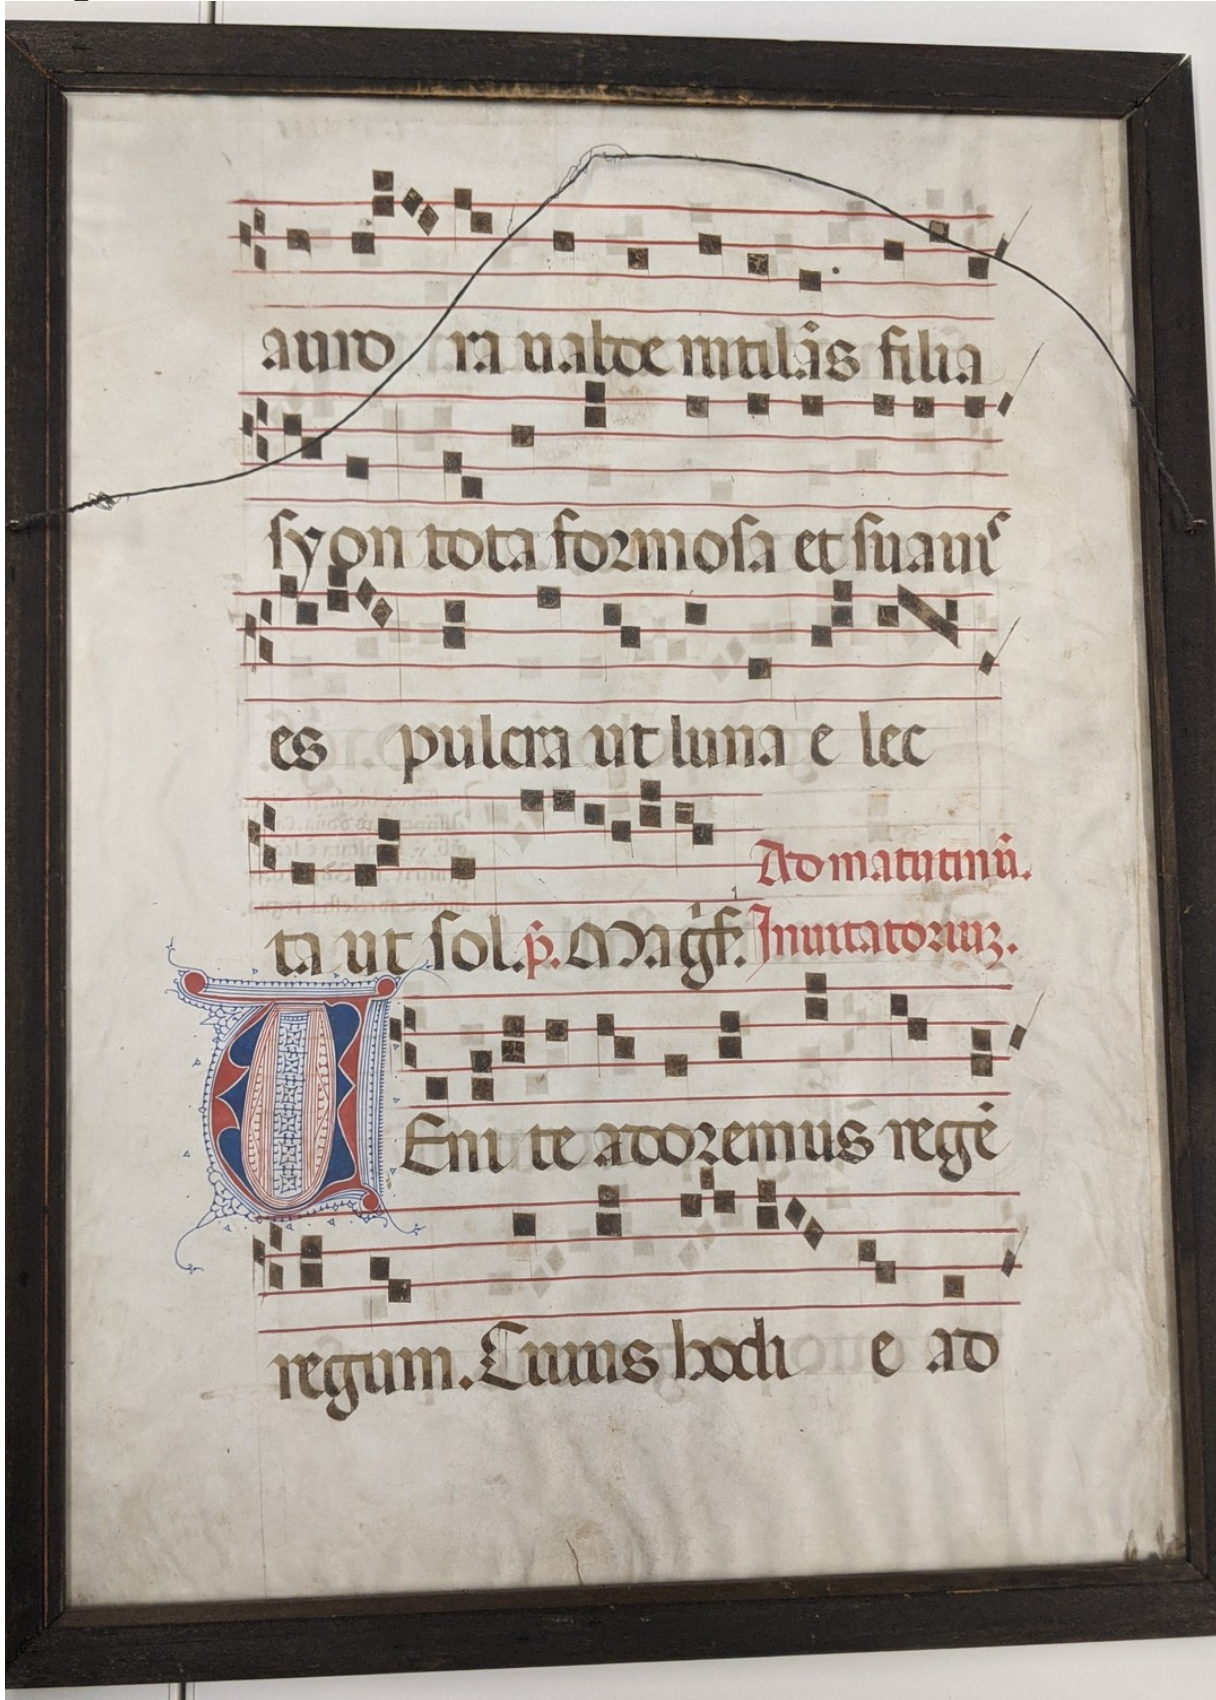 auro ra ualde rutilās filia
syon tota formosa et suaui
es pulcra ut luna e lec
Ad matutinū.
ta ut sol. p̄. Magf̄. Inuitatoriuz.
UEni te adoremus regē
regum. Cuius hodi e ad